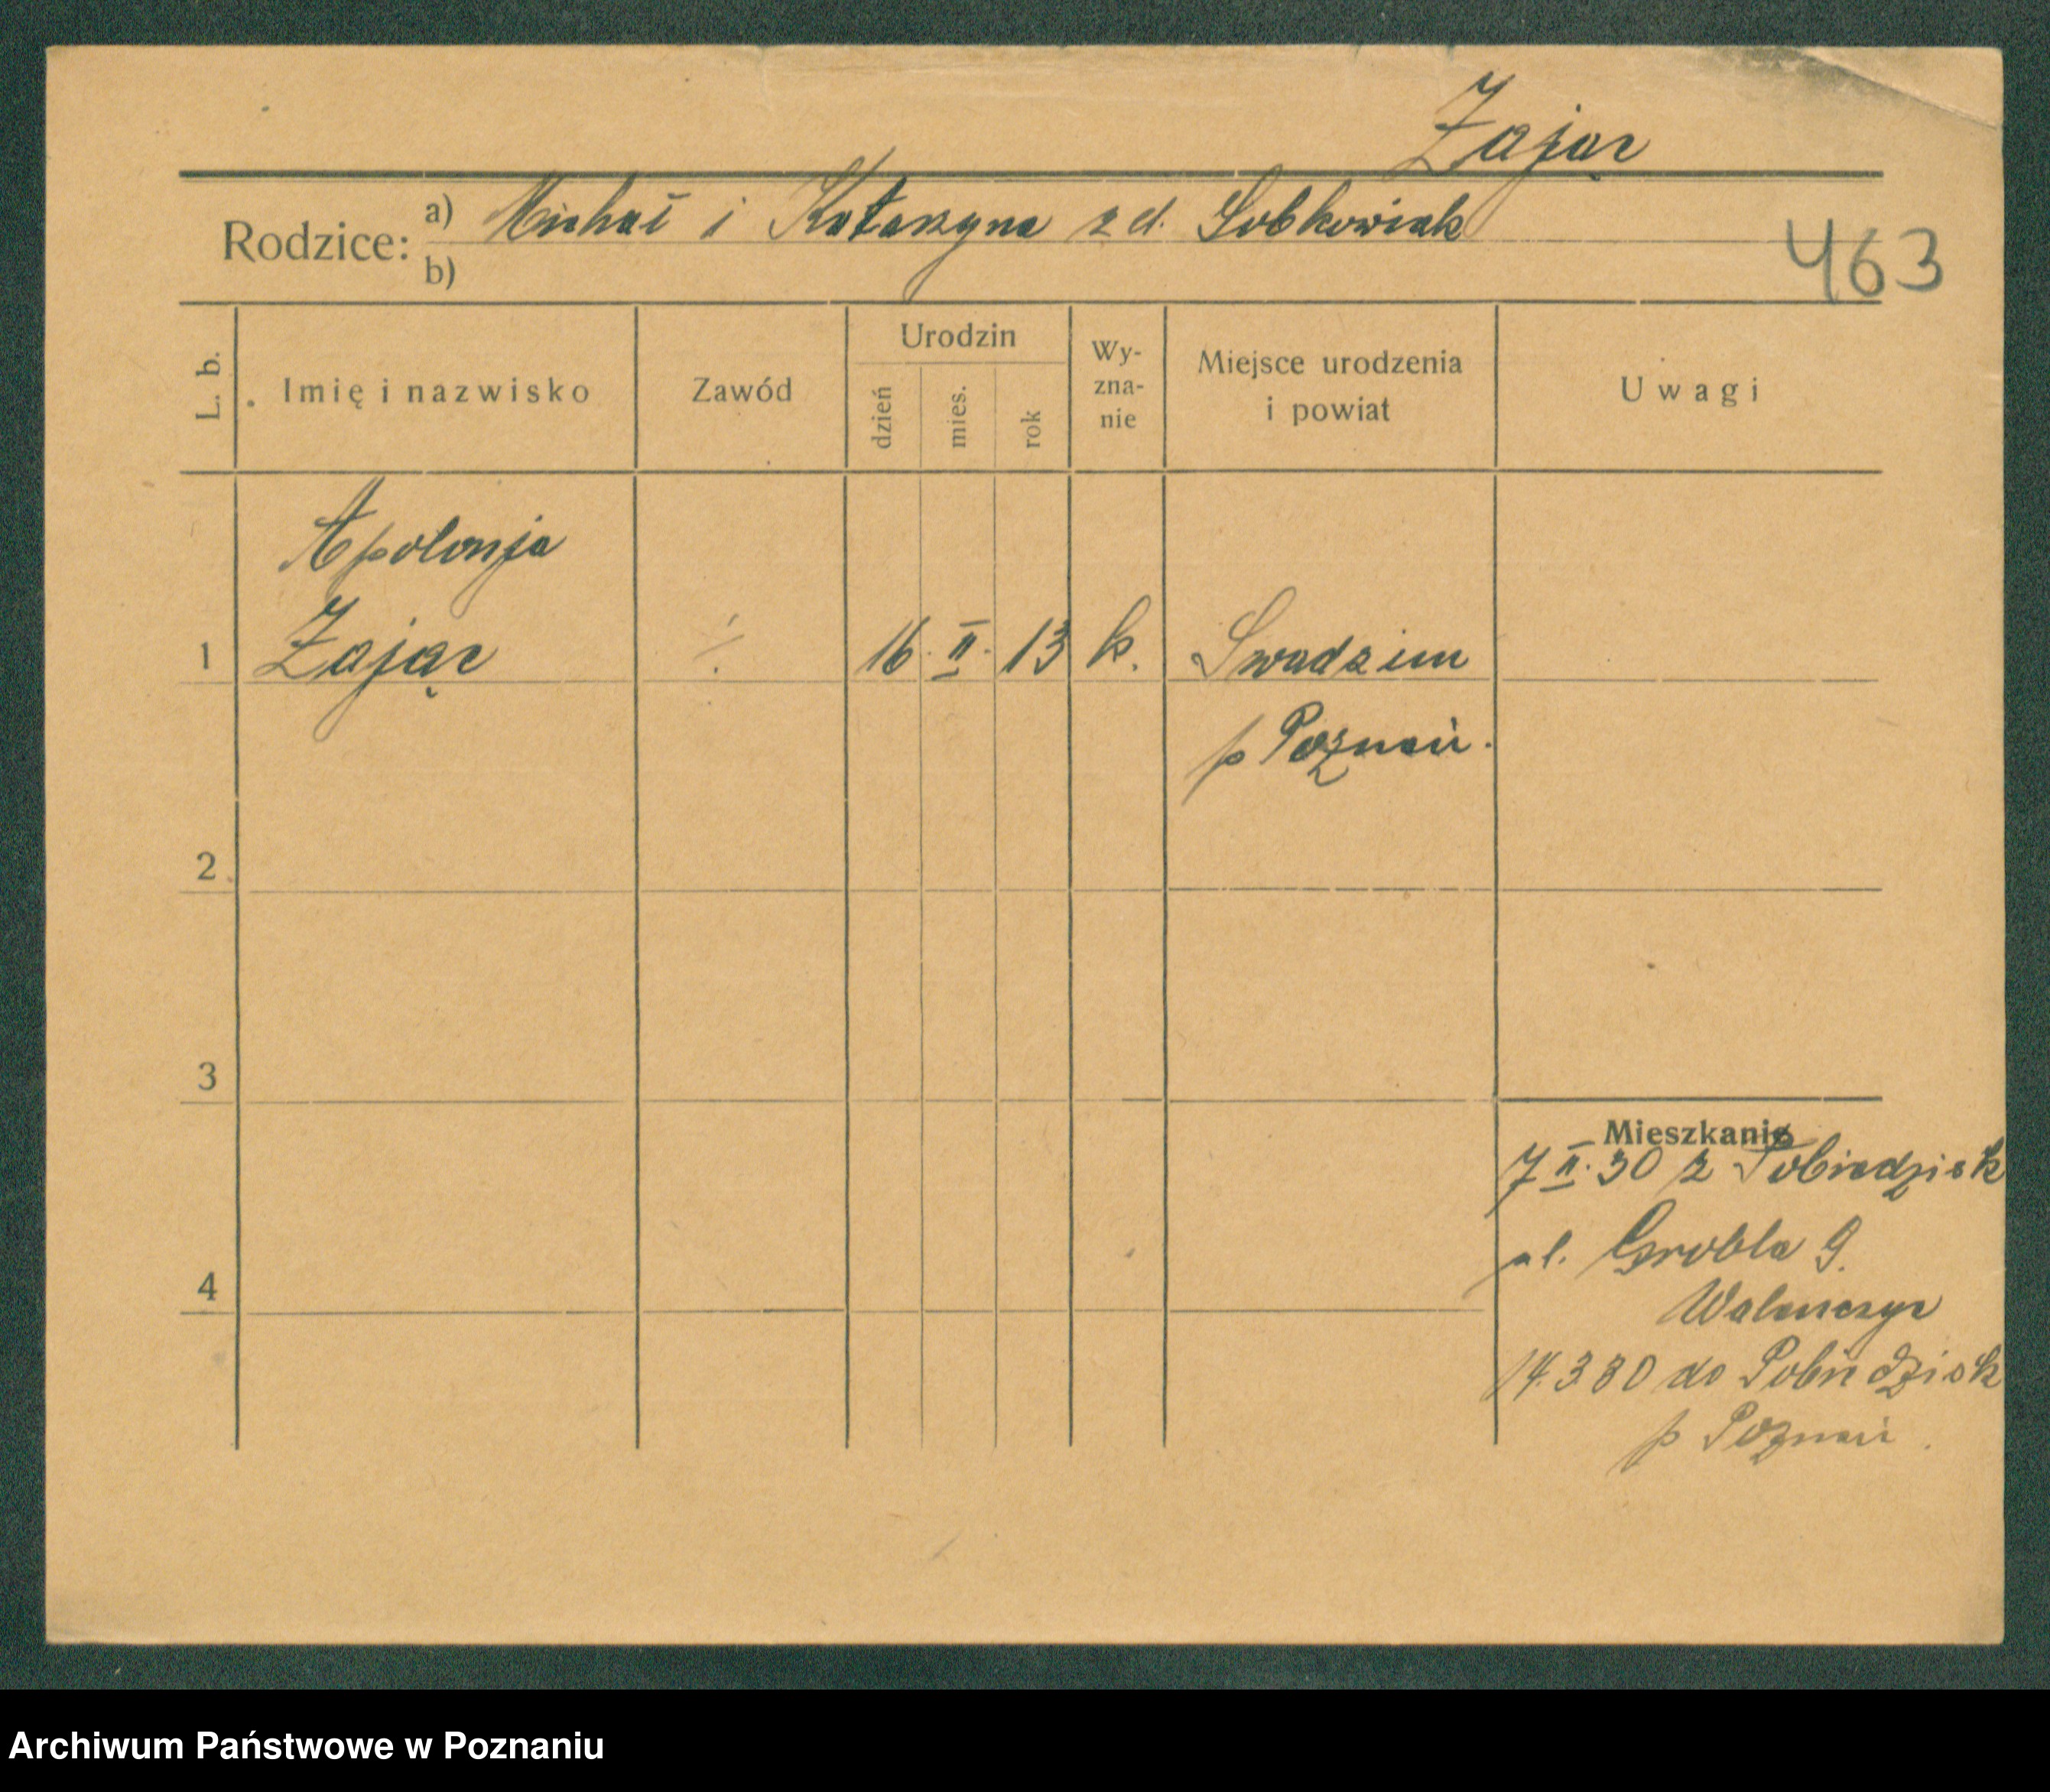 Zając
Rodzice: a) Michał i Katarzyna z d. Sobkowiak
b)
463
L. b. Imię i nazwisko Zawód Urodzin dzień mies. rok Wy-zna-nie Miejsce urodzenia i powiat Uwagi
Apolonja
1 Zając ./. 16. II. 13 k. Swadzim
p Poznań.
2
3
Mieszkanie
7 II. 30 z Pobiedzisk
ul. Grobla 9.
4
14.3.30 do Pobiedzisk
p Poznań.
Archiwum Państwowe w Poznaniu